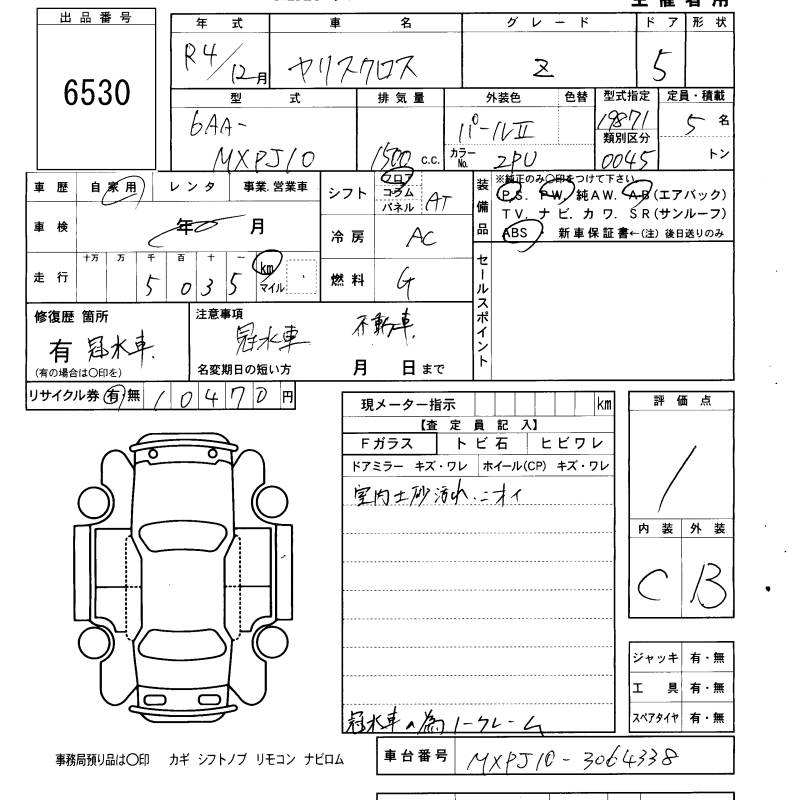 出品番号
6530
年式 車名 グレード ドア 形状
R4/12月 ヤリスクロス Z 5
型式 排気量 外装色 色替 型式指定 定員・積載
6AA-MXPJ10 1500 C.C. パールⅡ 19871 5名
カラーNo. 2PU 類別区分 0045 トン
車歴 自家用 レンタ 事業.営業車
車検 年 月
走行 十万 万 千 百 十 一
5 0 3 5 km マイル
シフト フロア コラム パネル AT
冷房 AC
燃料 G
装備品 ※純正のみ〇印をつけて下さい
P.S. P.W. 純A.W. A.B (エアバック)
T.V. ナビ. カワ. S.R (サンルーフ)
ABS ・ 新車保証書←(注) 後日送りのみ
セールスポイント
修復歴 箇所
有 冠水車.
(有の場合は〇印を)
注意事項
冠水車 不動車.
名変期日の短い方 月 日まで
リサイクル券 有・無 10470円
現メーター指示 km
【査定員記入】
Fガラス トビ石 ヒビワレ
ドアミラー キズ・ワレ ホイール(CP) キズ・ワレ
室内土砂汚れ.ニオイ
冠水車の為ノークレーム
評価点
1
内装 外装
C B
ジャッキ 有・無
工具 有・無
スペアタイヤ 有・無
事務局預り品は〇印 カギ シフトノブ リモコン ナビロム
車台番号 MXPJ10-3064338